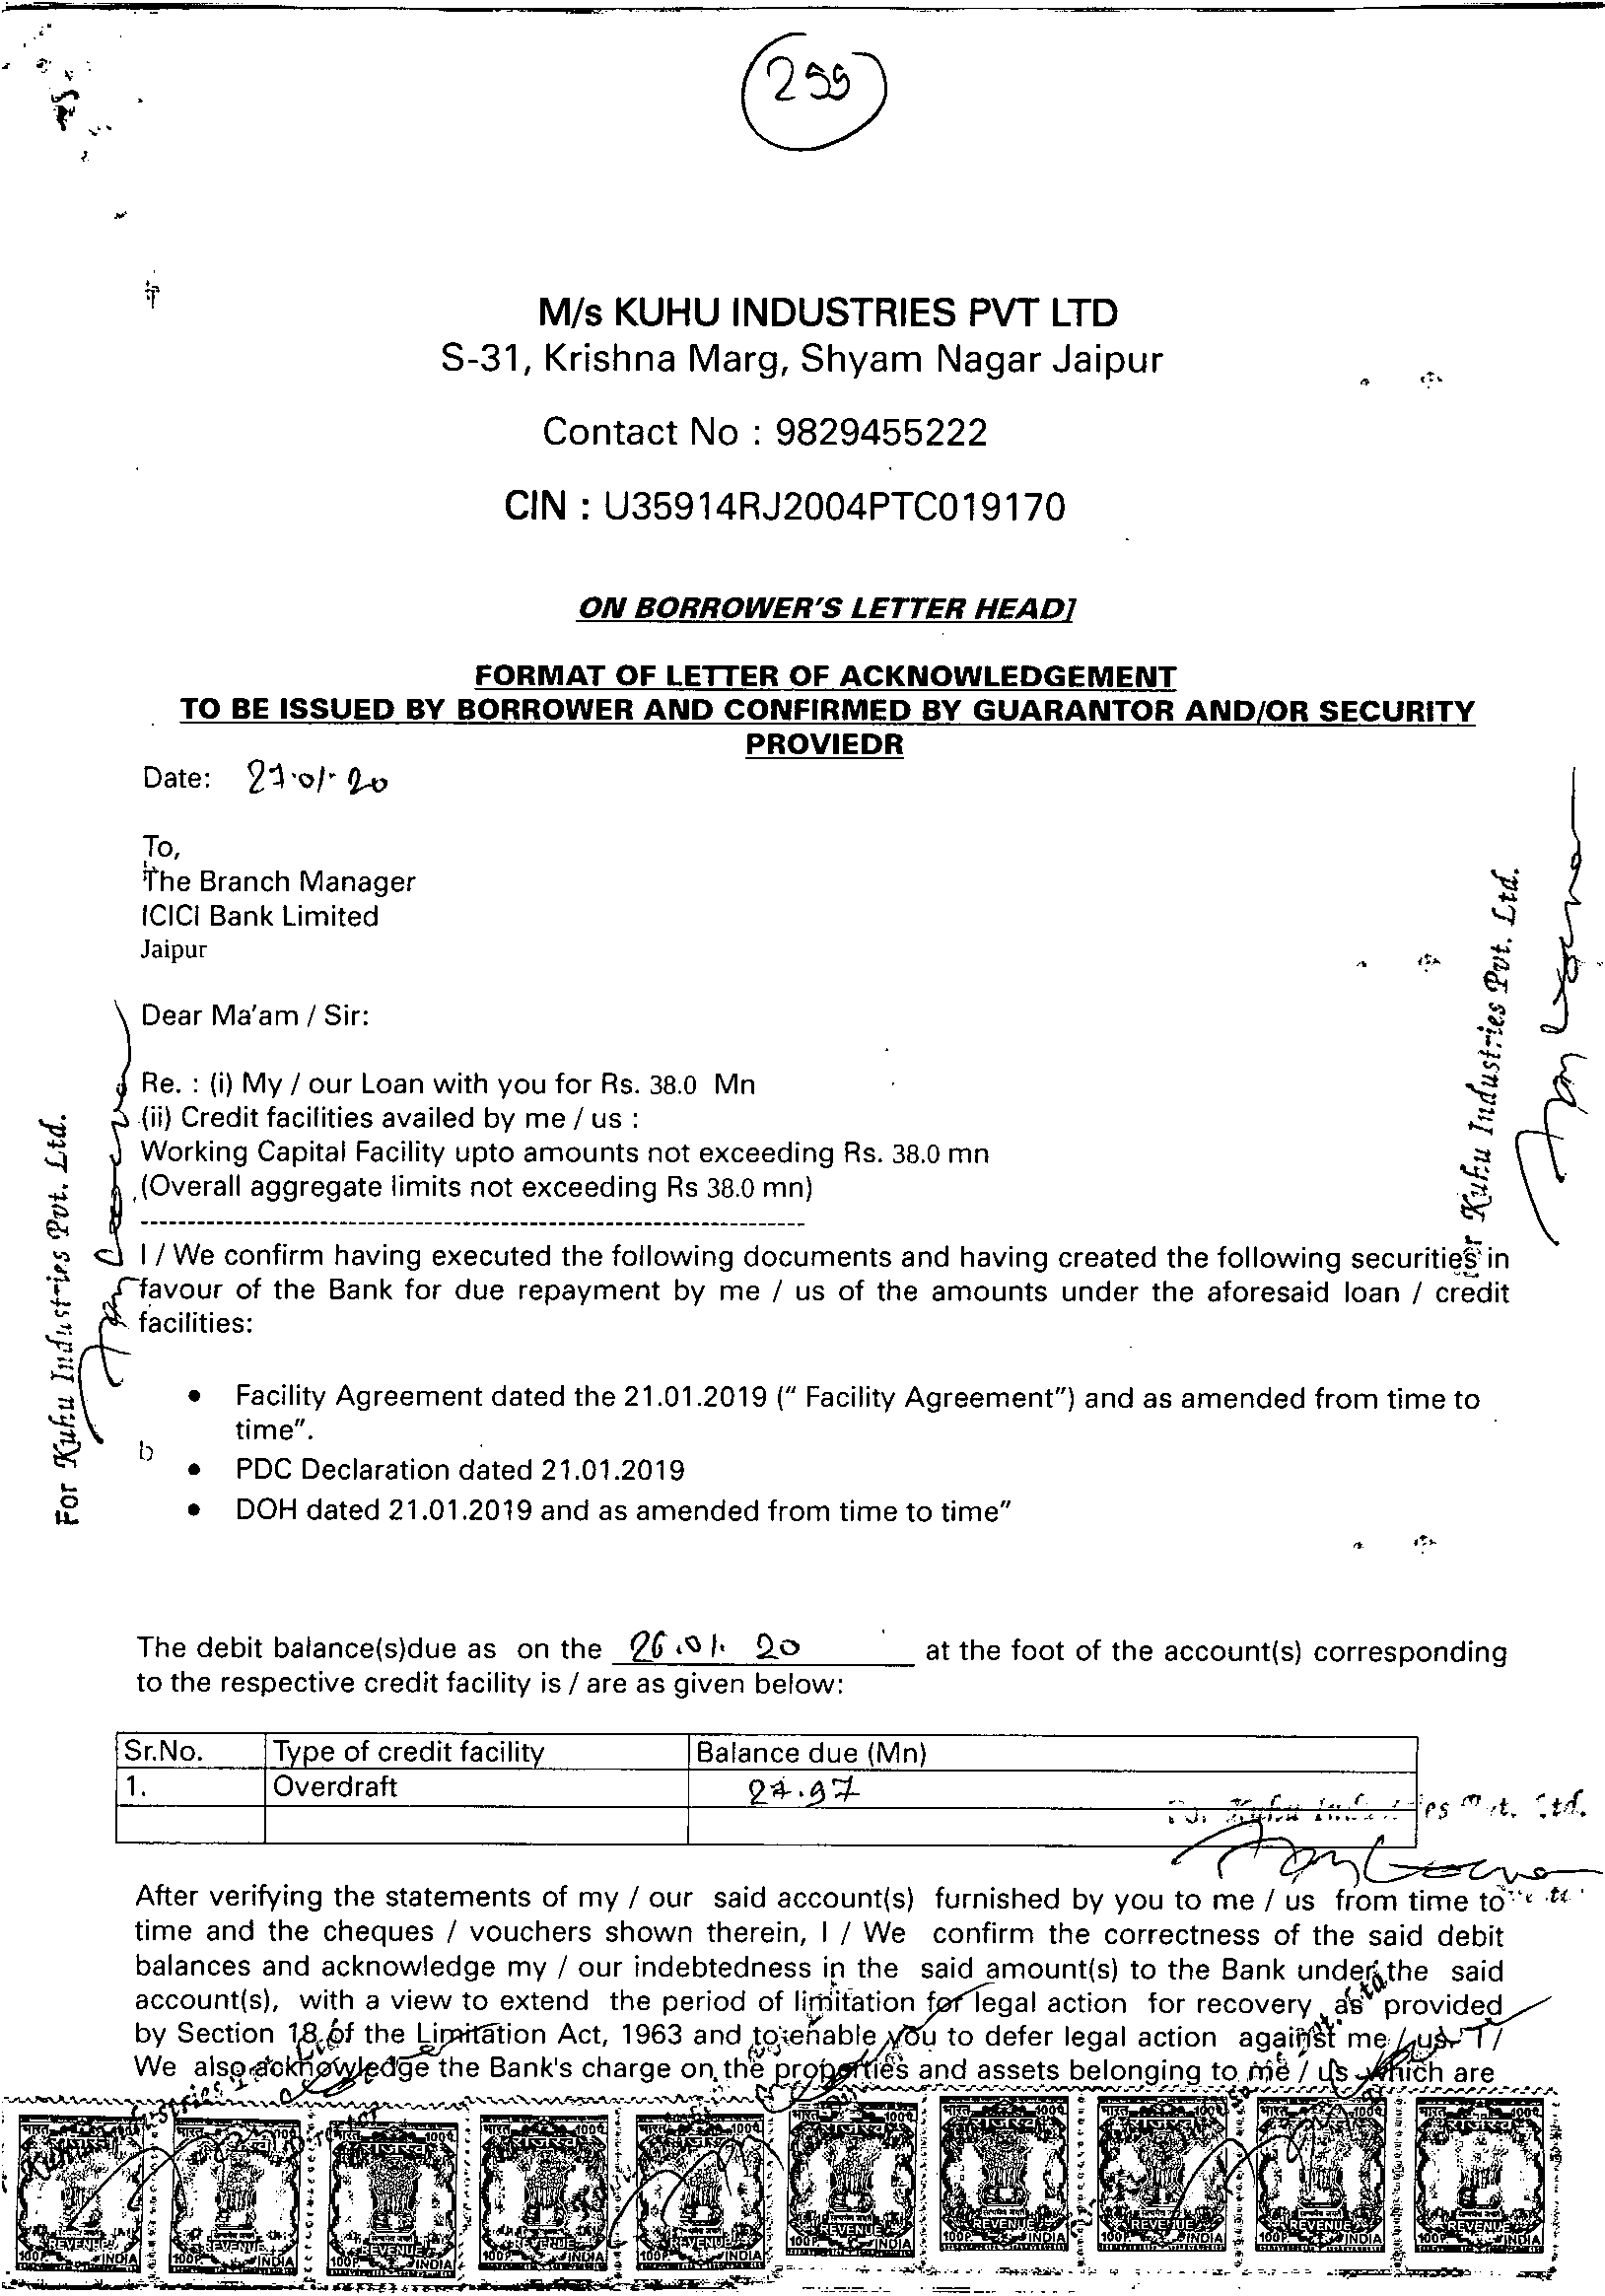 299
M/s KUHU INDUSTRIES PVT LTD
S-31, Krishna Marg, Shyam Nagar Jaipur
Contact No : 9829455222
CIN : U35914RJ2004PTC019170
ON BORROWER'S LETTER HEAD]
FORMAT OF LETTER OF ACKNOWLEDGEMENT
TO BE ISSUED BY BORROWER AND CONFIRMED BY GUARANTOR AND/OR SECURITY
PROVIEDR
Date: 27.01.20
To,
The Branch Manager
ICICI Bank Limited
Jaipur
Dear Ma'am / Sir:
Re. : (i) My / our Loan with you for Rs. 38.0 Mn
(ii) Credit facilities availed by me / us :
Working Capital Facility upto amounts not exceeding Rs. 38.0 mn
(Overall aggregate limits not exceeding Rs 38.0 mn)
I / We confirm having executed the following documents and having created the following securities in
favour of the Bank for due repayment by me / us of the amounts under the aforesaid loan / credit
facilities:
• Facility Agreement dated the 21.01.2019 (" Facility Agreement") and as amended from time to
time".
• PDC Declaration dated 21.01.2019
• DOH dated 21.01.2019 and as amended from time to time"
For Kuhu Industries Pvt. Ltd.
Kuhu Industries Pvt. Ltd.
The debit balance(s)due as on the 26.01.20 at the foot of the account(s) corresponding
to the respective credit facility is / are as given below:
Sr.No. Type of credit facility Balance due (Mn)
1. Overdraft 27.97
After verifying the statements of my / our said account(s) furnished by you to me / us from time to
time and the cheques / vouchers shown therein, I / We confirm the correctness of the said debit
balances and acknowledge my / our indebtedness in the said amount(s) to the Bank under the said
account(s), with a view to extend the period of limitation for legal action for recovery, as provided
by Section 18 of the Limitation Act, 1963 and to enable you to defer legal action against me / us. I /
We also acknowledge the Bank's charge on the properties and assets belonging to me / us which are
भारत 100P REVENUE INDIA